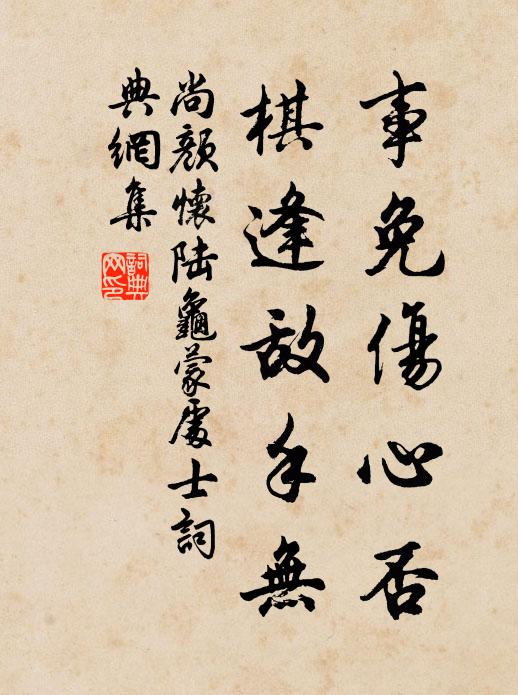 事免傷心否
棋逢敵手無
尚顏懷陸龜蒙處士詞
典網集
詞典網印